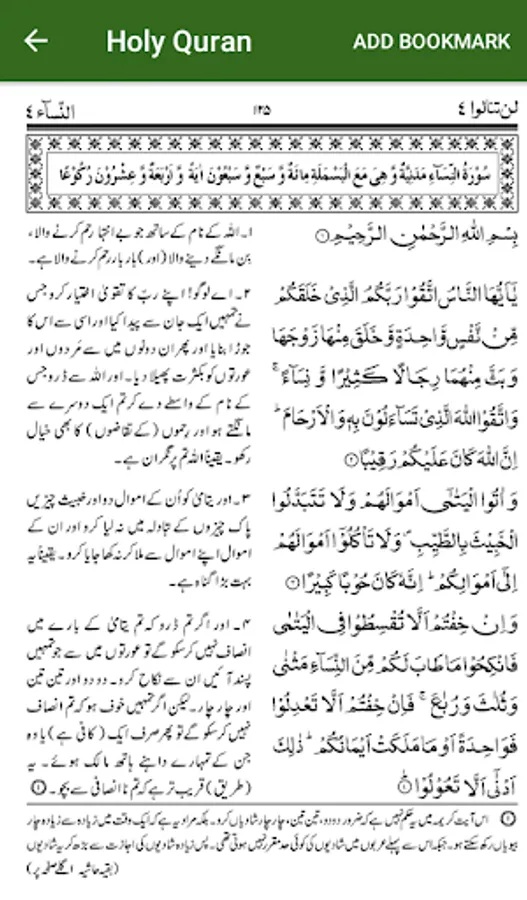 Holy Quran
ADD BOOKMARK
لن تنالوا ٤
١٢٥
النّسآء ٤
سُوۡرَةُ النِّسَآءِ مَدَنِیَّةٌ وَّ ھِیَ مَعَ الۡبَسۡمَلَةِ مِائَةٌ وَّ سَبۡعٌ وَّ سَبۡعُوۡنَ اٰیَةً وَّ اَرۡبَعَةٌ وَّ عِشۡرُوۡنَ رُکُوۡعًا
بِسۡمِ اللّٰہِ الرَّحۡمٰنِ الرَّحِیۡمِ ①
یٰۤاَیُّہَا النَّاسُ اتَّقُوۡا رَبَّکُمُ الَّذِیۡ خَلَقَکُمۡ
مِّنۡ نَّفۡسٍ وَّاحِدَۃٍ وَّ خَلَقَ مِنۡہَا زَوۡجَہَا
وَ بَثَّ مِنۡہُمَا رِجَالًا کَثِیۡرًا وَّ نِسَآءً ۚ
وَ اتَّقُوا اللّٰہَ الَّذِیۡ تَسَآءَلُوۡنَ بِہٖ وَ الۡاَرۡحَامَ ؕ
اِنَّ اللّٰہَ کَانَ عَلَیۡکُمۡ رَقِیۡبًا ②
وَ اٰتُوا الۡیَتٰمٰۤی اَمۡوَالَہُمۡ وَ لَا تَتَبَدَّلُوا
الۡخَبِیۡثَ بِالطَّیِّبِ ۪ وَ لَا تَاۡکُلُوۡۤا اَمۡوَالَہُمۡ
اِلٰۤی اَمۡوَالِکُمۡ ؕ اِنَّہٗ کَانَ حُوۡبًا کَبِیۡرًا ③
وَ اِنۡ خِفۡتُمۡ اَلَّا تُقۡسِطُوۡا فِی الۡیَتٰمٰی
فَانۡکِحُوۡا مَا طَابَ لَکُمۡ مِّنَ النِّسَآءِ مَثۡنٰی
وَ ثُلٰثَ وَ رُبٰعَ ۚ فَاِنۡ خِفۡتُمۡ اَلَّا تَعۡدِلُوۡا
فَوَاحِدَۃً اَوۡ مَا مَلَکَتۡ اَیۡمَانُکُمۡ ؕ ذٰلِکَ
اَدۡنٰۤی اَلَّا تَعُوۡلُوۡا ④
۱۔ اللہ کے نام کے ساتھ جو بے انتہا رحم کرنے والا،
بن مانگے دینے والا (اور) بار بار رحم کرنے والا ہے۔
۲۔ اے لوگو! اپنے ربّ کا تقویٰ اختیار کرو جس
نے تمہیں ایک جان سے پیدا کیا اور اسی سے اس کا
جوڑا بنایا اور پھر ان دونوں میں سے مَردوں اور
عورتوں کو بکثرت پھیلا دیا۔ اور اللہ سے ڈرو جس
کے نام کے واسطے دے کر تم ایک دوسرے سے
مانگتے ہو اور رحموں (کے تقاضوں) کا بھی خیال
رکھو۔ یقیناً اللہ تم پر نگران ہے۔
۳۔ اور یتامیٰ کو اُن کے اموال دو اور خبیث چیزیں
پاک چیزوں کے تبادلہ میں نہ لیا کرو اور ان کے
اموال اپنے اموال سے ملا کر نہ کھا جایا کرو۔ یقیناً یہ
بہت بڑا گناہ ہے۔
۴۔ اور اگر تم ڈرو کہ تم یتامیٰ کے بارے میں
انصاف نہیں کر سکو گے تو عورتوں میں سے جو تمہیں
پسند آئیں ان سے نکاح کرو۔ دو دو اور تین تین
اور چار چار۔ لیکن اگر تمہیں خوف ہو کہ تم انصاف
نہیں کر سکو گے تو پھر صرف ایک (کافی ہے) یا وہ
جن کے تمہارے داہنے ہاتھ مالک ہوئے۔ یہ
(طریق) قریب تر ہے کہ تم نا انصافی سے بچو۔ ①
① اس آیت کریمہ میں یہ حکم نہیں ہے کہ ضرور دو دو، تین تین، چار چار شادیاں کرو۔ بلکہ مراد یہ ہے کہ ایک وقت میں زیادہ سے زیادہ چار
بیویاں رکھ سکتے ہو۔ جبکہ اس سے پہلے عربوں میں شادیوں کی کوئی حد مقرر نہیں ہوتی تھی۔ پس زیادہ شادیوں کی اجازت سے بڑھ کر یہ شادیوں
(بقیہ حاشیہ اگلے صفحہ پر)